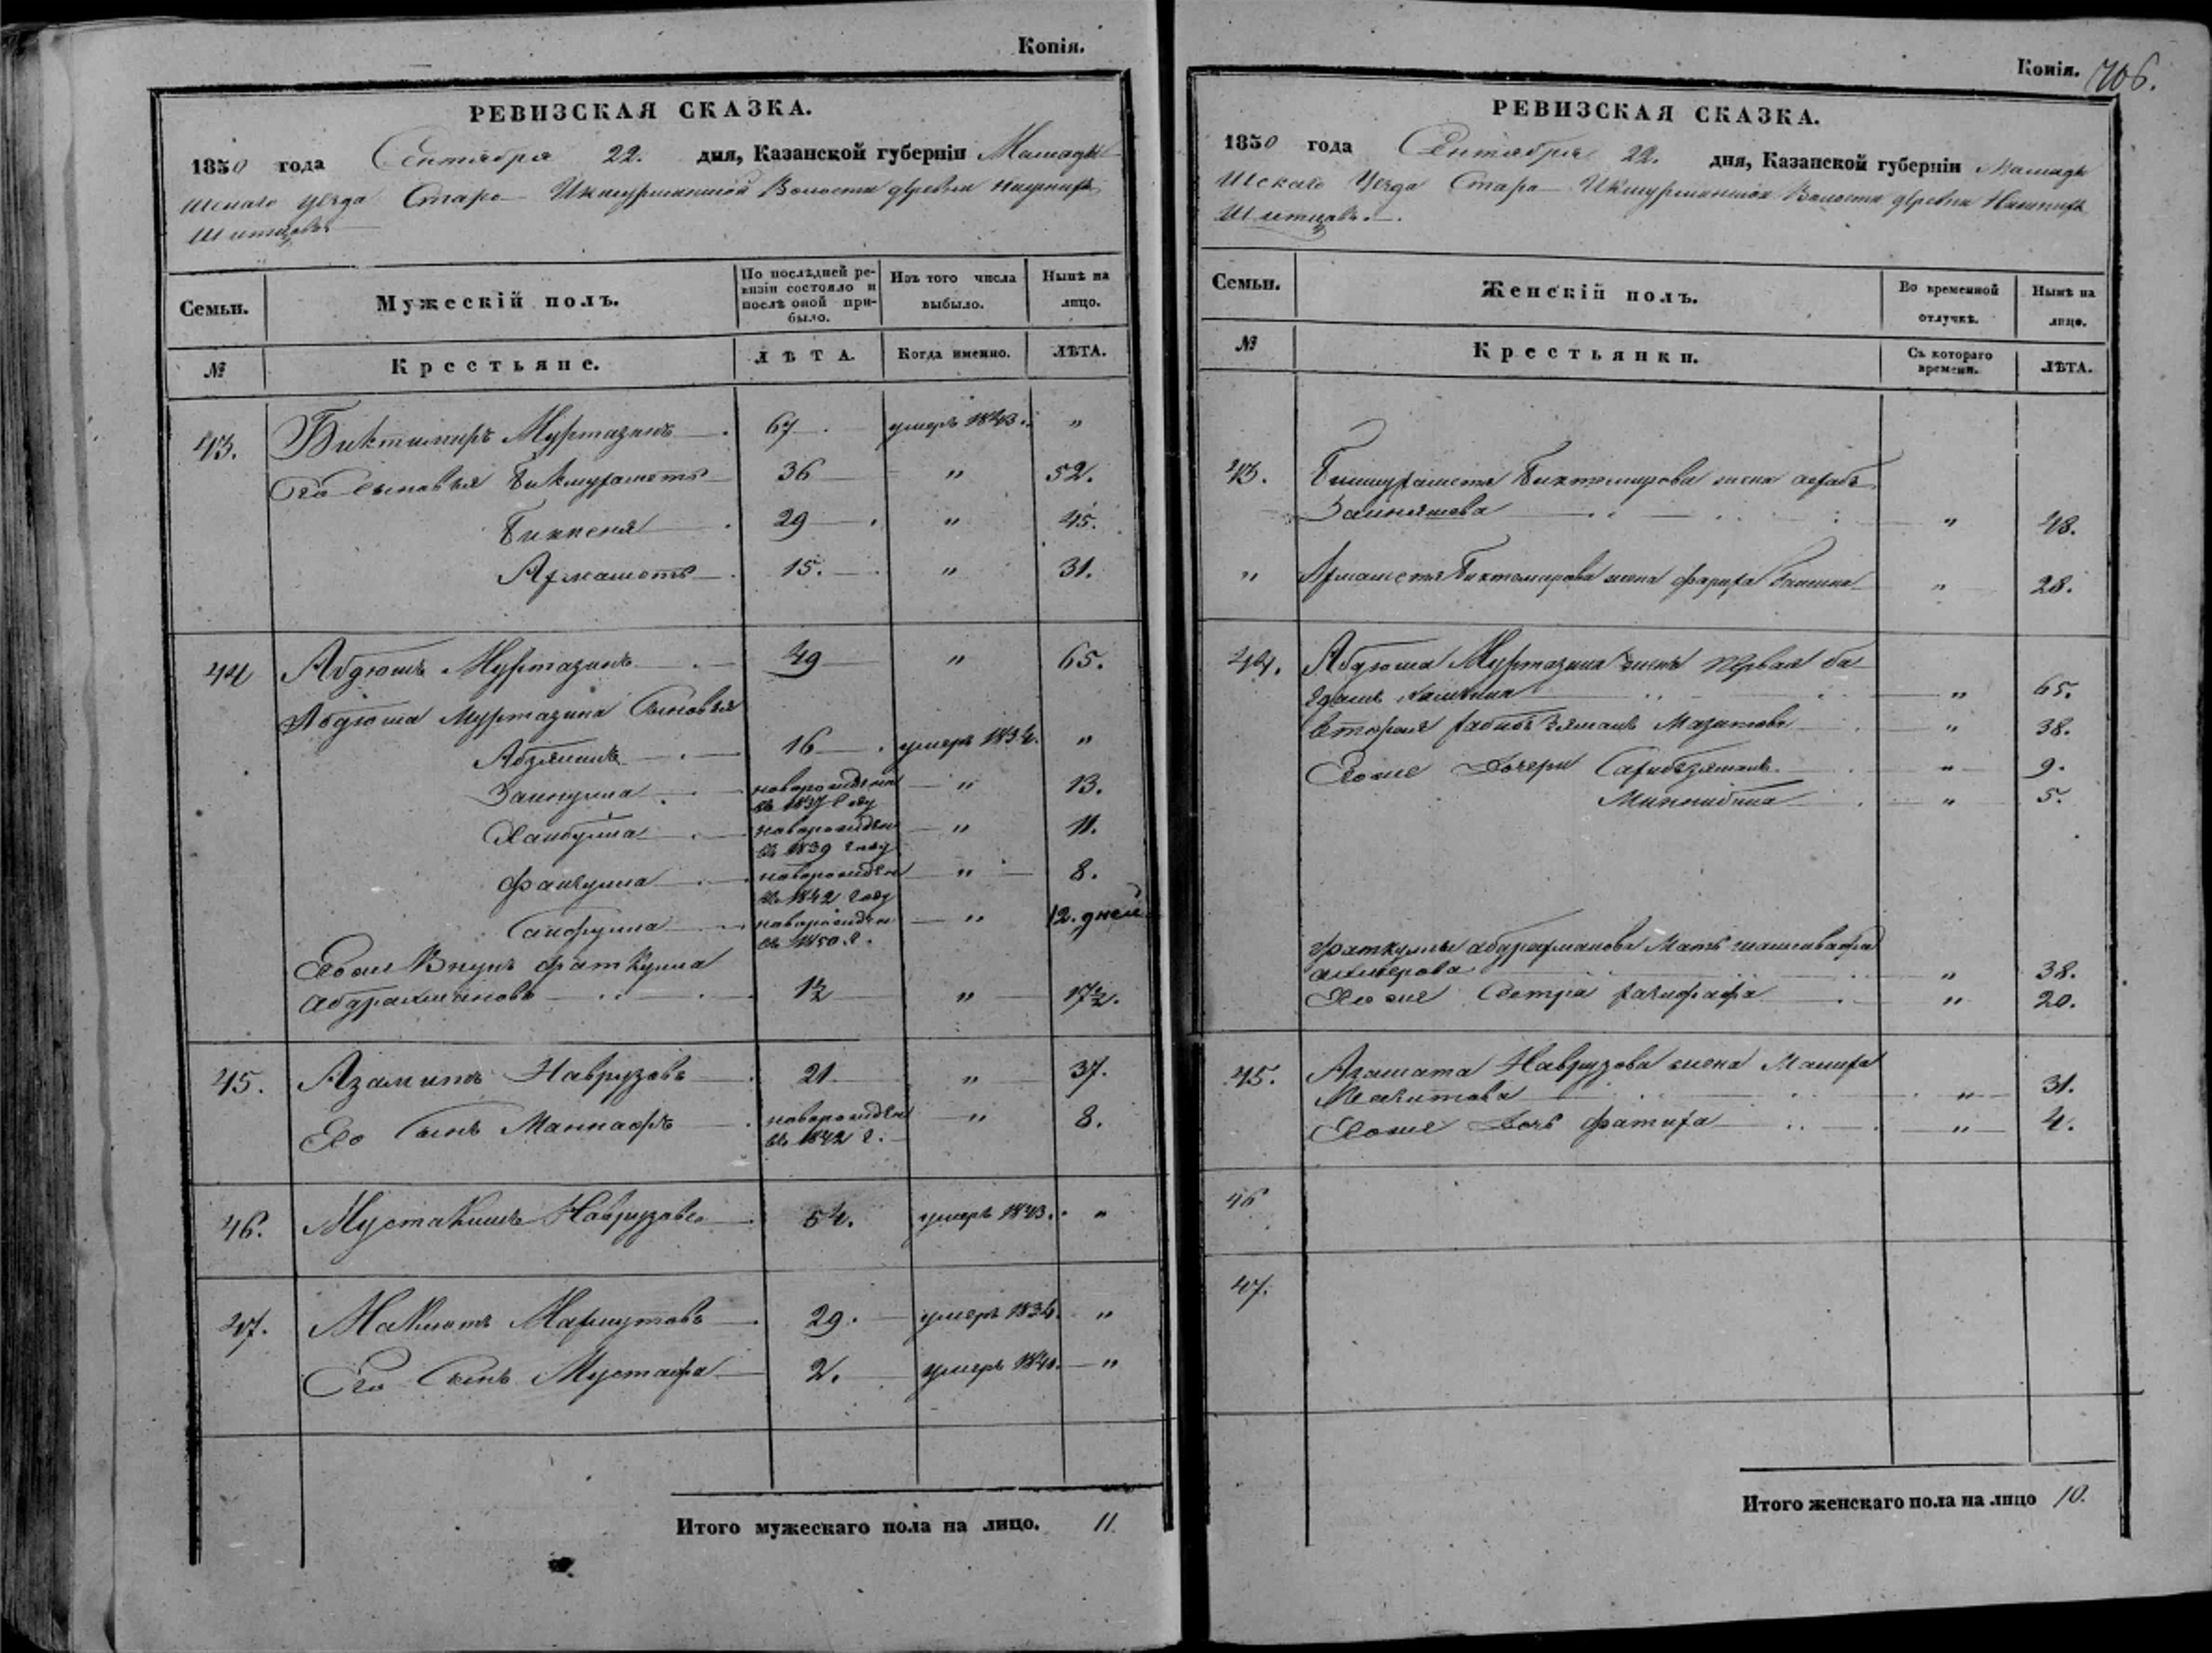 Копія.
РЕВИЗСКАЯ СКАЗКА.
1850 года Сентября 22. дня, Казанской губерніи Мамады
шскаго уѣзда Старо Икшурминской Волости деревни Нижнихъ
Шитцовъ
Семьи.
Мужескій полъ.
По послѣдней ре-
визіи состояло и
послѣ оной при-
было.
Изъ того числа
выбыло.
Нынѣ на
лицо.
№
Крестьяне.
ЛѢТА.
Когда именно.
ЛѢТА.
43. Биктимиръ Муртазинъ 67 умеръ 1843. "
Его сыновья Бикмухаметъ 36 " 52.
Биккеня 29 " 45.
Ахмаметъ 15. " 31.
44 Абдюшъ Муртазинъ 49 " 65.
Абдюша Муртазина Сыновья
16 умеръ 1834. "
новорожденъ " 13.
въ 1837 году
новорожденъ " 11.
въ 1839 году
новорожденъ " 8.
въ 1842 году
Сайфулла новорожденъ " 12. дней
въ 1850 г.
Его же Внукъ Фаткулла
Абдрахмановъ 1½ " 17½.
45. Азаматъ Наврузовъ 21 " 37.
Его Сынъ Маннафъ новорожденъ " 8.
въ 1842 г.
46. Мустакимъ Наврузовъ 54. умеръ 1843. "
47. Махмутовъ 29. умеръ 1834. "
Его Сынъ Мустафа 2. умеръ 1840. "
Итого мужескаго пола на лицо. 11.
Копія. 706.
РЕВИЗСКАЯ СКАЗКА.
1850 года Сентября 22. дня, Казанской губерніи Мамады
шскаго Уѣзда Старо Икшурминской Волости деревни Нижнихъ
Шитцовъ.
Семьи.
Женскій полъ.
Во временной
отлучкѣ.
Нынѣ на
лицо.
№
Крестьянки.
Съ котораго
времени.
ЛѢТА.
43. Бикмухаметя Биктимирова жена
" 48.
" Ахмаметя Биктимирова жена " 28.
44. Абдюша Муртазина жена первая
" 65.
Вторая " 38.
Его же Дочери " 9.
" 5.
Фаткуллы Абдрахманова Мать
" 38.
Его же Сестра " 20.
45. Азамата Наврузова жена
" 31.
Его же Дочь Фатиха " 4.
46
47.
Итого женскаго пола на лицо 10.